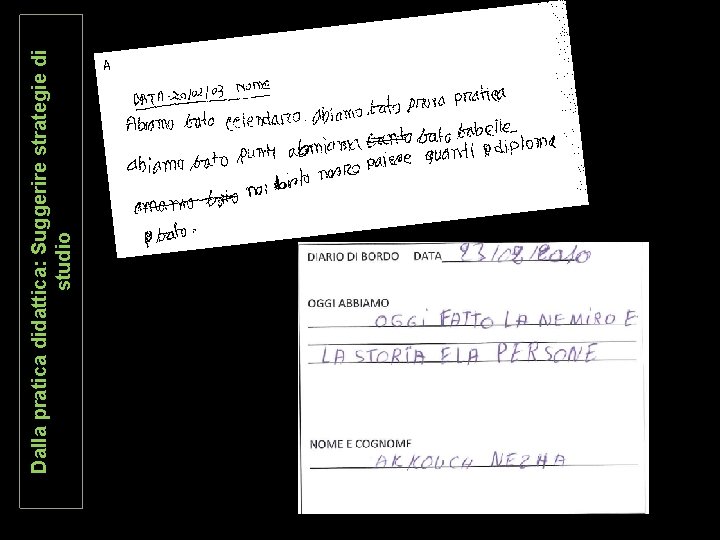 Dalla pratica didattica: Suggerire strategie di
studio
A
DATA 20/02/03 NOME
Abiamo bato celendario. abiamo bato prova pratica
abiamo bato punti bato tabelle
noi nostro paiese quanti diploma
bato.
DIARIO DI BORDO DATA 23/02/2010
OGGI ABBIAMO
OGGI FATTO LA NEMIRO E
LA STORIA E LA PERSONE
NOME E COGNOME
AKKOUCH NEZHA